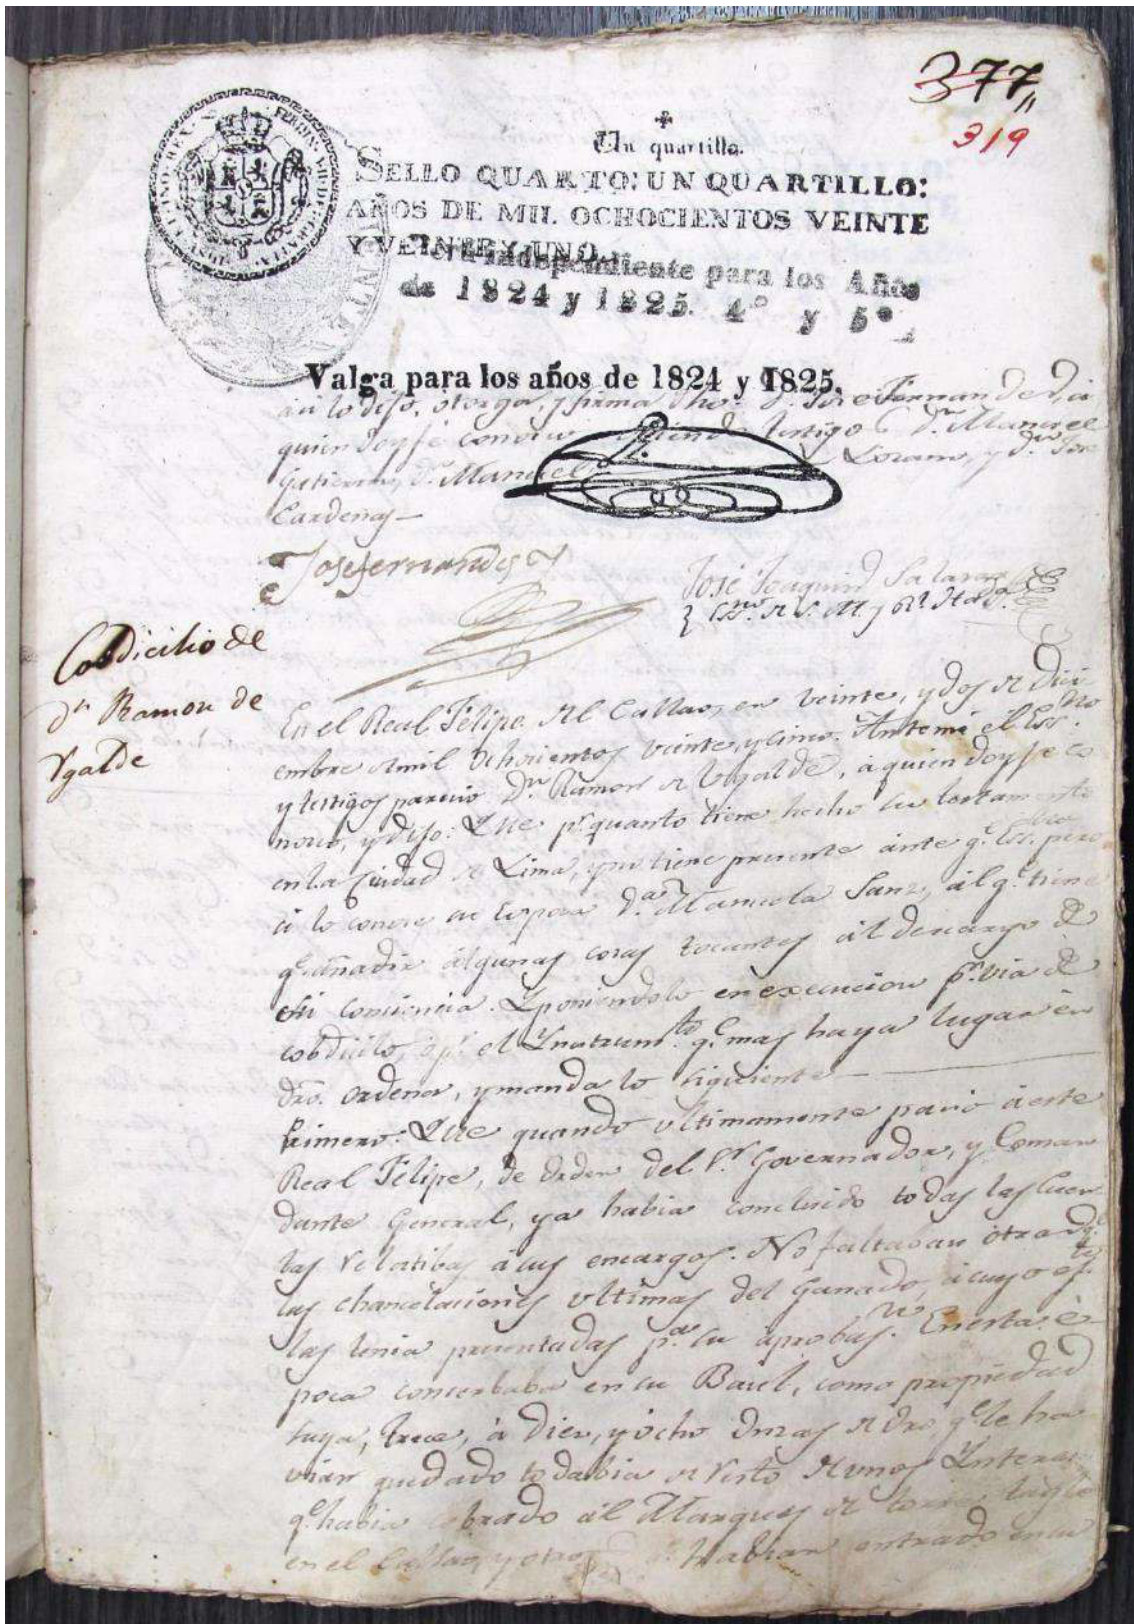 377,,
319
Un quartillo.
SELLO QUARTO: UN QUARTILLO:
AÑOS DE MIL OCHOCIENTOS VEINTE
Y VEINTE Y UNO.
Independiente para los Años
de 1824 y 1825. 4º y 5º
Valga para los años de 1824 y 1825.
asi lo dijo, otorga, y firma dho. Dn. Jose Fernandez, à
quien doy fe conosco siendo testigos Dn. Manuel
Gutierrez, Dn. Manuel Lozano, y Dn. Jose
Cardenas—
Jose Fernandez
José Joaquin Salazar
Essno. de S. M. y Rl. Hda.
Cobdicilio de
Dn Ramon de
Ygalde
En el Real Felipe del Callao, en veinte, y dos de Dici
embre de mil ochocientos veinte, y cinco. Ante mi el Essno.
y testigos parecio Dn. Ramon de Ugalde, à quien doy fe co
nosco, y dijo: Que pr. quanto tiene hecho su testamento
en la Ciudad de Lima, y no tiene presente ante qe. Essno. pero
si lo conoce su Esposa Da. Manuela Sanz, àl qe. tiene
qe. añadir àlgunas cosas tocantes àl descargo de
su conciencia. Y poniendolo en execucion pr. via de
cobdicilo, el Ynstrumto. qe. mas haya lugar en
dro. ordena, y manda lo siguiente—
Primero: Que quando ultimamente pasó à este
Real Felipe, de orden del Sr. Governador, y Coman
dante General, ya habia concluido todas las cuen
tas relatibas à sus encargos. No faltaban otra qe.
las chancelaciones ultimas del Ganado, à cuyo efto.
las tenia presentadas pa. su àprobasn. En esta è
poca conserbaba en su Baul, como propiedad
suya, trece, à diez, y ócho Onzas de Oro, qe. le ha
vian quedado todabia de resto de unos Ynteres
qe. habia cobrado àl Marques de torre tagle
en el Callao, y otros habian entrado en su